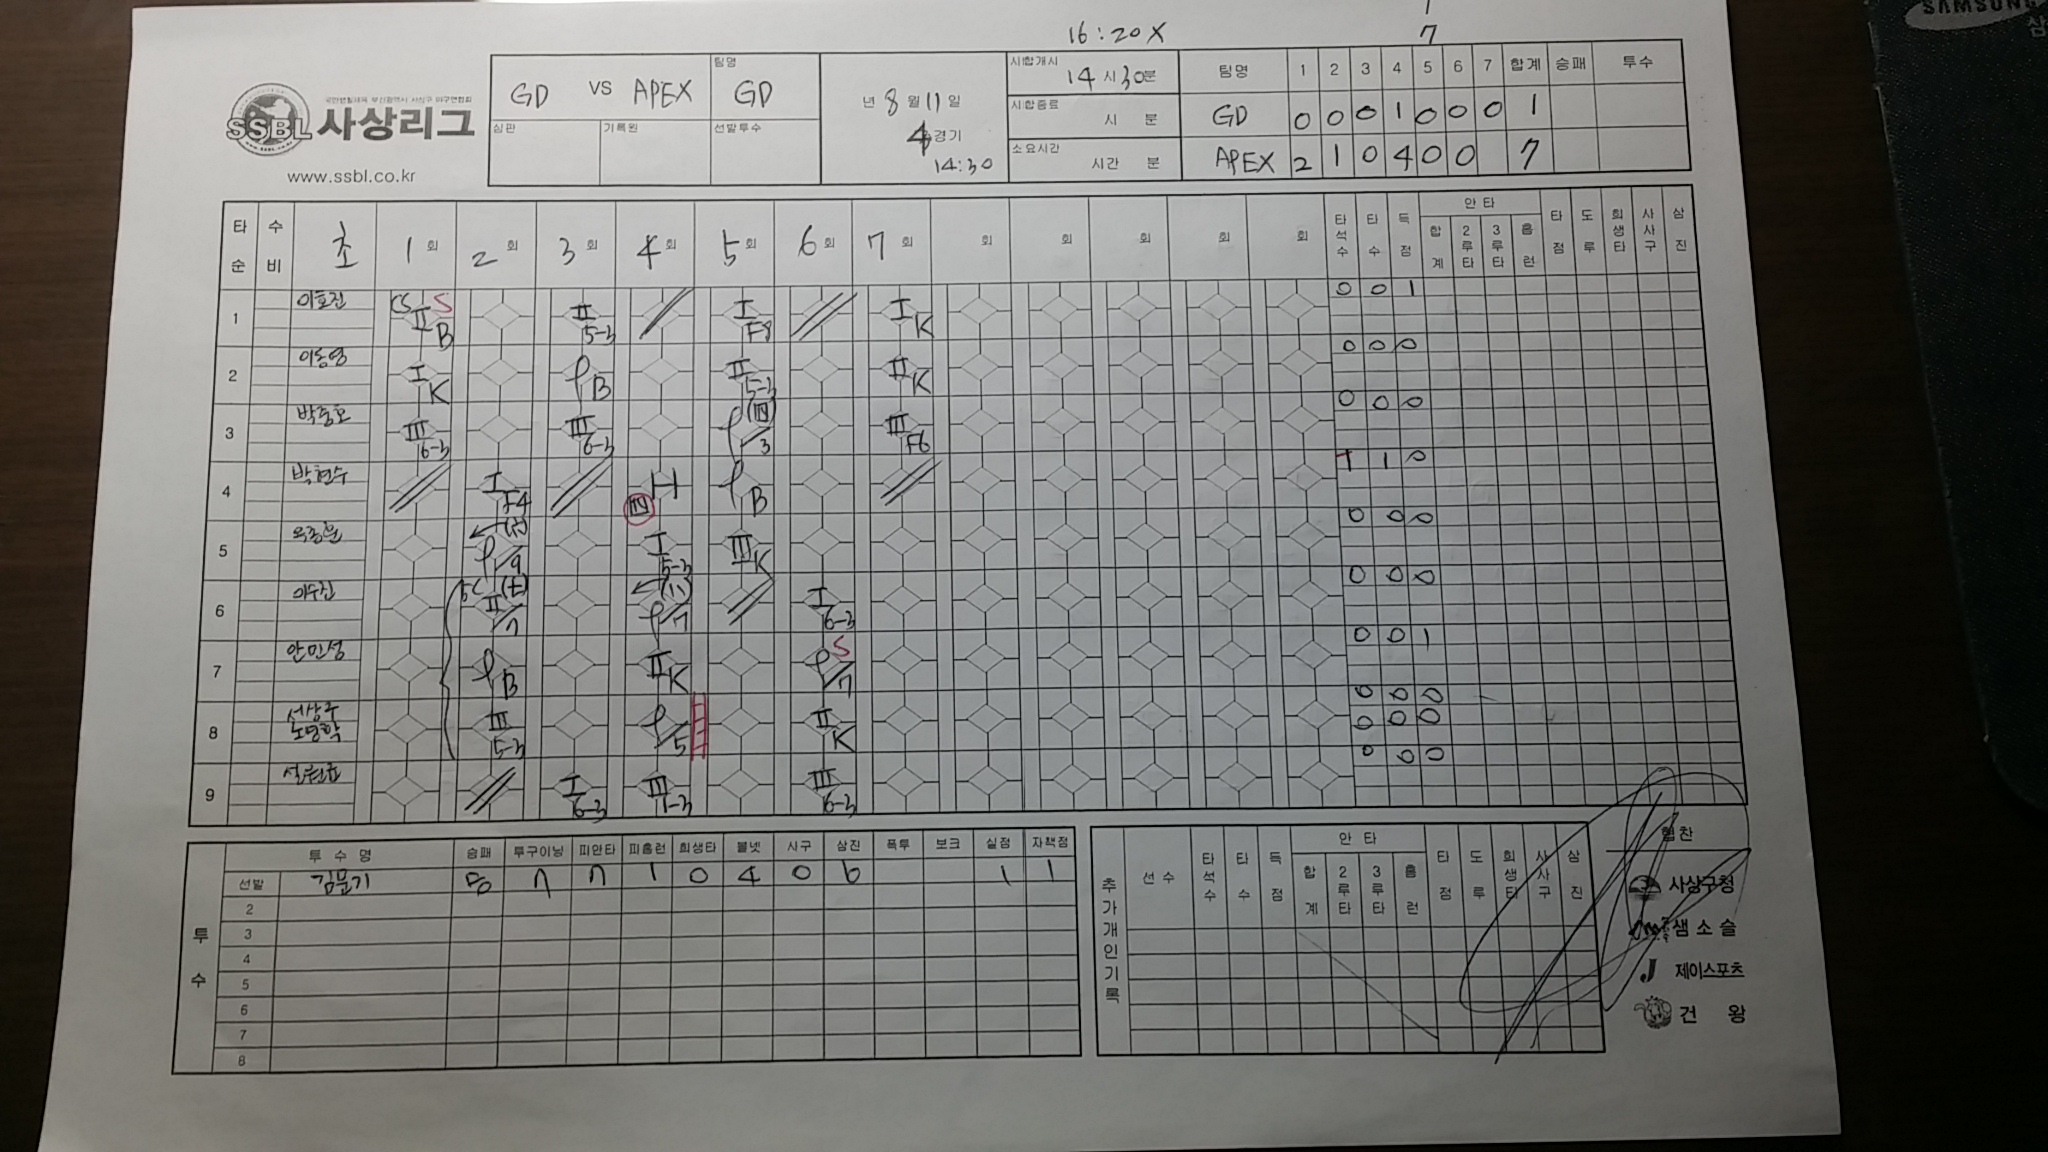 SAMSUNG
16:20X
7
SSBL 사상리그
www.ssbl.co.kr
GD VS APEX
팀명
GD
심판
기록원
선발투수
년 8 월 11 일
4 경기
14:30
시합개시
14 시 30 분
시합종료
시 분
소요시간
시간 분
팀명 1 2 3 4 5 6 7 합계 승패 투수
GD 0 0 0 1 0 0 0 1
APEX 2 1 0 4 0 0 7
타순 수비 초 1회 2회 3회 4회 5회 6회 7회 회 회 회 회 회 타석수 타수 득점 안타 합계 2루타 3루타 홈런 타점 도루 희생타 사사구 삼진
1 이효진 CS S II B II 5-3 I F8 I K 0 0 1
2 I K B II 5-3 II K 0 0 0
3 III 6-3 III 6-3 /3 III F6 0 0 0
4 박현수 I F4 H B 1 0
5 /9 I 5-3 III K 0 0 0
6 II /7 /7 I 6-3 0 0 0
7 안민성 B II K S /7 0 0 1
8 III 5-3 /5 II K 0 0 0
0 0 0
9 I 6-3 III 1-3 III 6-3 0 0 0
투수
투수명 승패 투구이닝 피안타 피홈런 희생타 볼넷 시구 삼진 폭투 보크 실점 자책점
선발 김문기 7 7 1 0 4 0 6 1 1
2
3
4
5
6
7
8
추가개인기록
선수 타석수 타수 득점 안타 합계 2루타 3루타 홈런 타점 도루 희생타 사사구 삼진
협찬
사상구청
샘소슬
제이스포츠
건왕